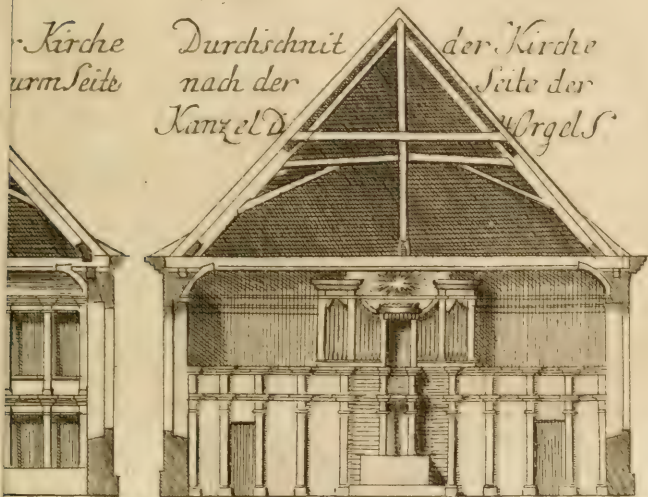 r Kirche
urm Seite
Durchschnit der Kirche
nach der Seite der
Kanzel D Orgel S